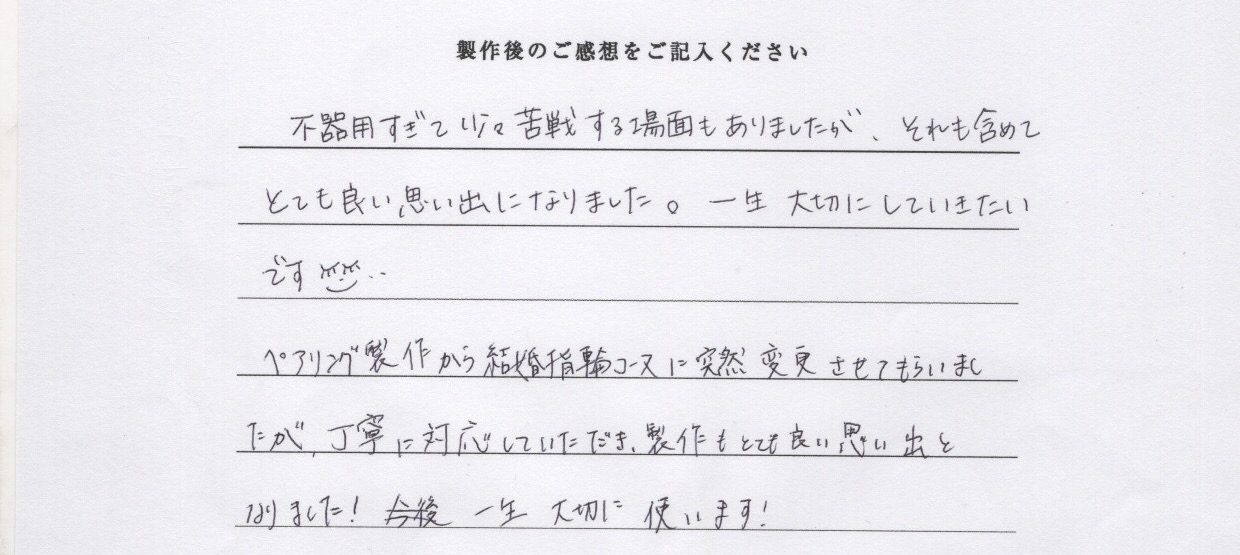 製作後のご感想をご記入ください
不器用すぎて少々苦戦する場面もありましたが、それも含めて
とても良い思い出になりました。一生大切にしていきたい
です
ペアリング製作から結婚指輪コースに突然変更させてもらいまし
たが、丁寧に対応していただき、製作もとても良い思い出と
なりました！今後一生大切に使います！